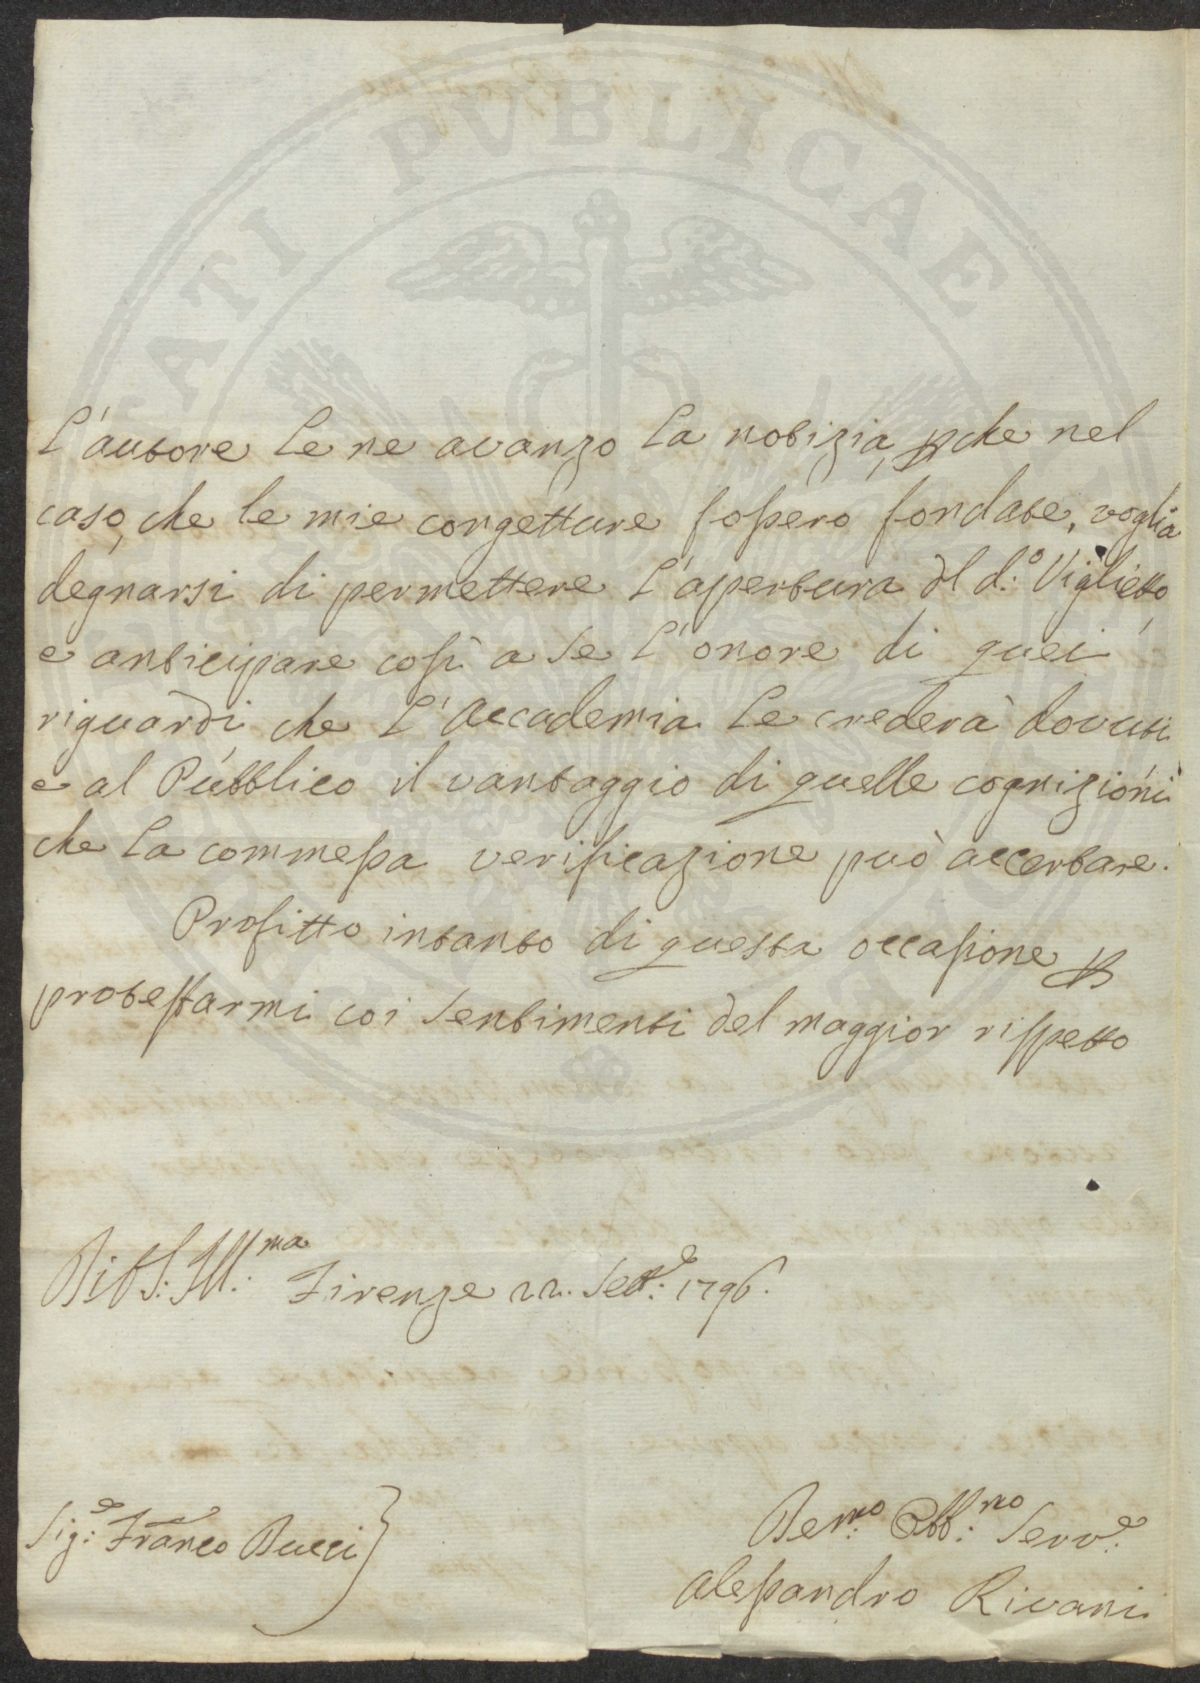 PVBLICAE
L'autore Le ne avanzo La notizia, pche nel
caso, che le mie congetture fossero fondate, voglia
degnarsi di permettere L'apertura dl d.o Viglietto,
e anticipare così a Se L'onore di quei
riguardi che L'Accademia Le crederà dovuti
e al Pubblico il vantaggio di quelle cognizioni
che La commessa verificazione può accertare.
Profitto intanto di questa occasione p
protestarmi coi Sentimenti del maggior rispetto
Di V.S. Ill.ma Firenze 22. Sett.e 1796.
Sig.e Franco Bucci
Dev.mo Obb.mo Serv.e
Alessandro Rivani